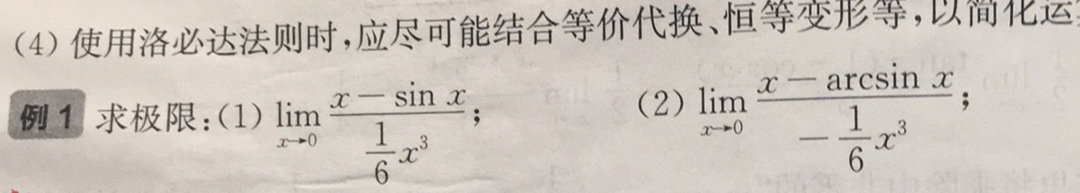 (4) 使用洛必达法则时,应尽可能结合等价代换、恒等变形等,以简化运
例 1 求极限:(1) lim_{x→0} \frac{x - sin x}{\frac{1}{6}x^3}; (2) lim_{x→0} \frac{x - arcsin x}{-\frac{1}{6}x^3};